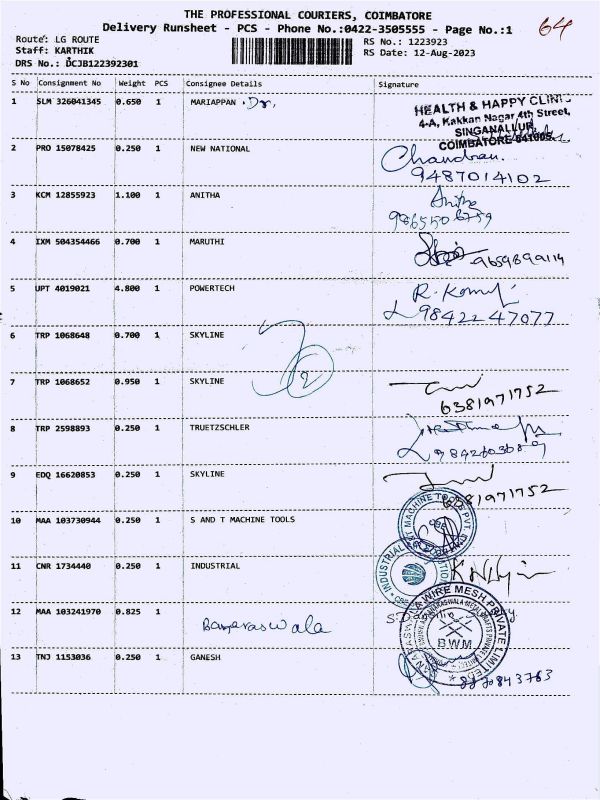 THE PROFESSIONAL COURIERS, COIMBATORE
64
Delivery Runsheet - PCS - Phone No.:0422-3505555 - Page No.:1
Route: LG ROUTE
RS No.: 1223923
Staff: KARTHIK
RS Date: 12-Aug-2023
DRS No.: DCJB122392301
S No Consignment No Weight PCS Consignee Details Signature
1 SLM 326041345 0.650 1 MARIAPPAN Dr.
HEALTH & HAPPY CLINIC
4-A, Kakkan Nagar 4th Street,
SINGANALLUR,
COIMBATORE-641005.
2 PRO 15078425 0.250 1 NEW NATIONAL Chandran.
9487014102
3 KCM 12855923 1.100 1 ANITHA Anitha
9865506759
4 IXM 504354466 0.700 1 MARUTHI 9659899114
5 UPT 4019021 4.800 1 POWERTECH R.
9842247077
6 TRP 1068648 0.700 1 SKYLINE
2
7 TRP 1068652 0.950 1 SKYLINE
6381971752
8 TRP 2598893 0.250 1 TRUETZSCHLER
9842603689
9 EDQ 16620853 0.250 1 SKYLINE
6381971752
10 MAA 103730944 0.250 1 S AND T MACHINE TOOLS
MACHINE TOOLS PVT.
11 CNR 1734440 0.250 1 INDUSTRIAL
INDUSTRIAL
12 MAA 103241970 0.825 1
Banaraswala
BANARASWALA WIRE MESH PRIVATE LIMITED
BWM
13 TNJ 1153036 0.250 1 GANESH